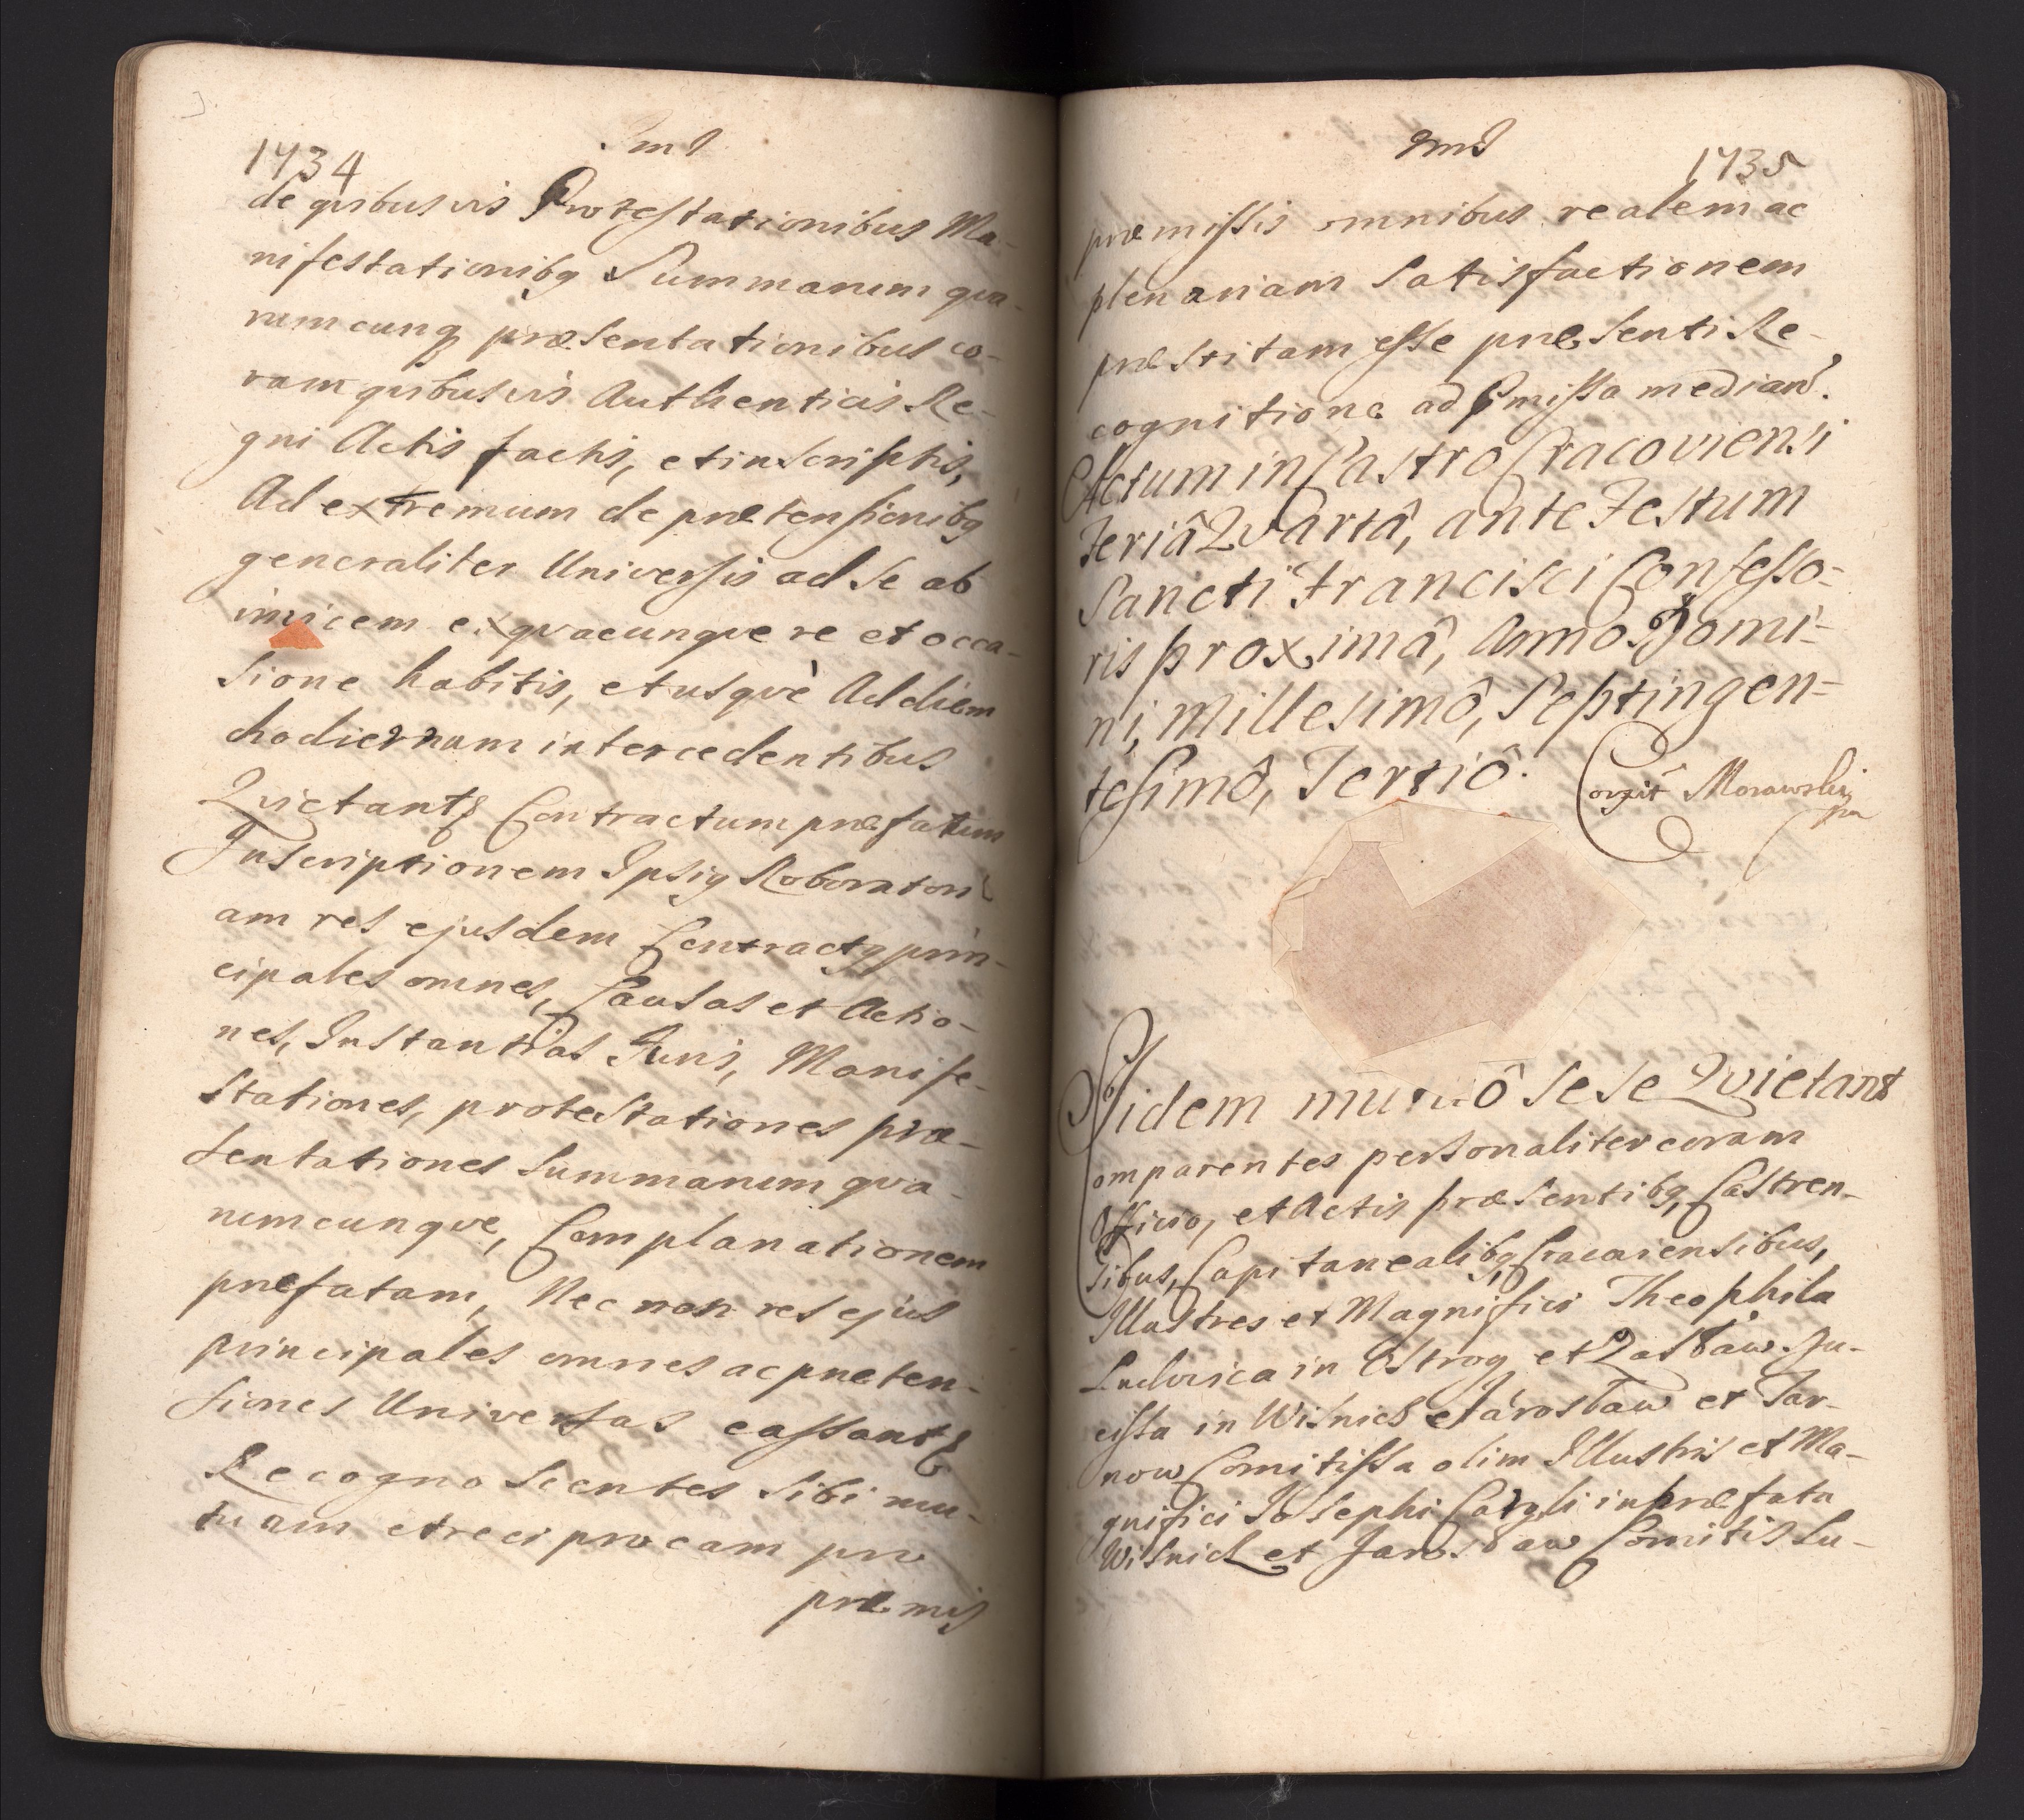 1734
de qvibusvis Protestationibus Ma-
nifestationibq Summarum qva-
rumcunq præsentationibus co-
ram qvibusvis Authenticis Re-
gni Actis factis, et inscriptis,
Ad extremum de prætensionibq
generaliter Universis ad se ab
invicem ex qvacunqve re et occa-
sione habitis, et usqvè Ad diem
hodiernam intercedentibus
Qvietant& Contractum præfatum
Inscriptionem Ipsiq Roboratori-
am res ejusdem Contractq prin-
cipales omnes, Causas et Actio-
nes, Instantias Juris, Manife-
stationes, protestationes præ-
sentationes Summarum qva-
rumcunqve, Complanationem
præfatam, Nec non res ejus
principales omnes ac præten-
siones Universas cassant&
Recognoscentes Sibi mu-
tuam et reciprocam pro
præmis
1735
præmissis omnibus realem ac
plenariam Satisfactionem
præstitam esse præsenti Re-
cognitione ad præmissa median.
Actum in Castro Cracoviensi
Feriâ Qvartâ, ante Festum
Sancti Francisci Confesso-
ris proximâ, Anno Domi-
ni, Millesimô, Septingen-
tesimô, Tertiô.
Corexit Morawski
Iidem mutuô sese Qvietant
Comparentes personaliter coram
Officio, et Actis præsentibq, Castren-
sibus, Capitanealibq Cracoviensibus,
Illustres et Magnifici Theophila
Ludovica in Ostrog et Zasław Du-
cissa in Wisnicz et Jarosław et Tar-
now Comitissa olim Illustris et Ma-
gnifici Josephi Caroli in præfata
Wisnicz et Jarosław Comitis Lu-